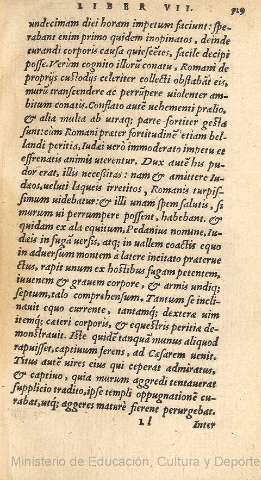 LIBER VII. 529
undecimam diei horam impetum faciunt: spe-
rabant enim primo quidem inopinatos, deinde
curandi corporis causa quiescẽtes, facile decipi
posse. Verùm cognito illorũ conatu, Romani de
proprijs custodijs celeriter collecti obstabãt eis,
murũ transcendere ac perrũpere violenter am-
bitum conatis. Conflato autẽ vehementi prælio,
& alia multa ab utraq; parte fortiter gesta
sunt: cùm Romani præter fortitudinẽ etiam bel-
landi peritia, Iudæi verò immoderato impetu et
effrenatis animis uterentur. Dux autẽ his pu-
dor erat, illis necessitas: nam & amittere Iu-
dæos, veluti laqueis irretitos, Romanis turpis-
simum videbatur: & illi unam spem salutis, si
murum vi perrumpere possent, habebant. &
quidam ex ala equitum, Pedanius nomine, Iu-
dæis in fugã versis, atq; in vallem coactis equo
in adversum montẽm à latere incitato præterve
ctus, rapit unum ex hostibus fugam petentem,
iuvenem & gravem corpore, & armis undiq;
septum, talo comprehensum. Tantum se incli-
nauit equo currente, tantamq; dexteræ uim
itemq; cæteri corporis, & equestris peritiæ de-
monstrauit. Iste quidẽ tanquã munus aliquod
rapuisset, captiuum ferens, ad Cæsarem uenit.
Titus autẽ vires eius qui ceperat admiratus,
& captiuo, quia murum aggredi tentauerat
supplicio tradito, ipse templi oppugnationẽ cu-
rabat, utq; aggeres maturè fierent perurgebat.
Ll
Inter
Ministerio de Educación, Cultura y Deporte